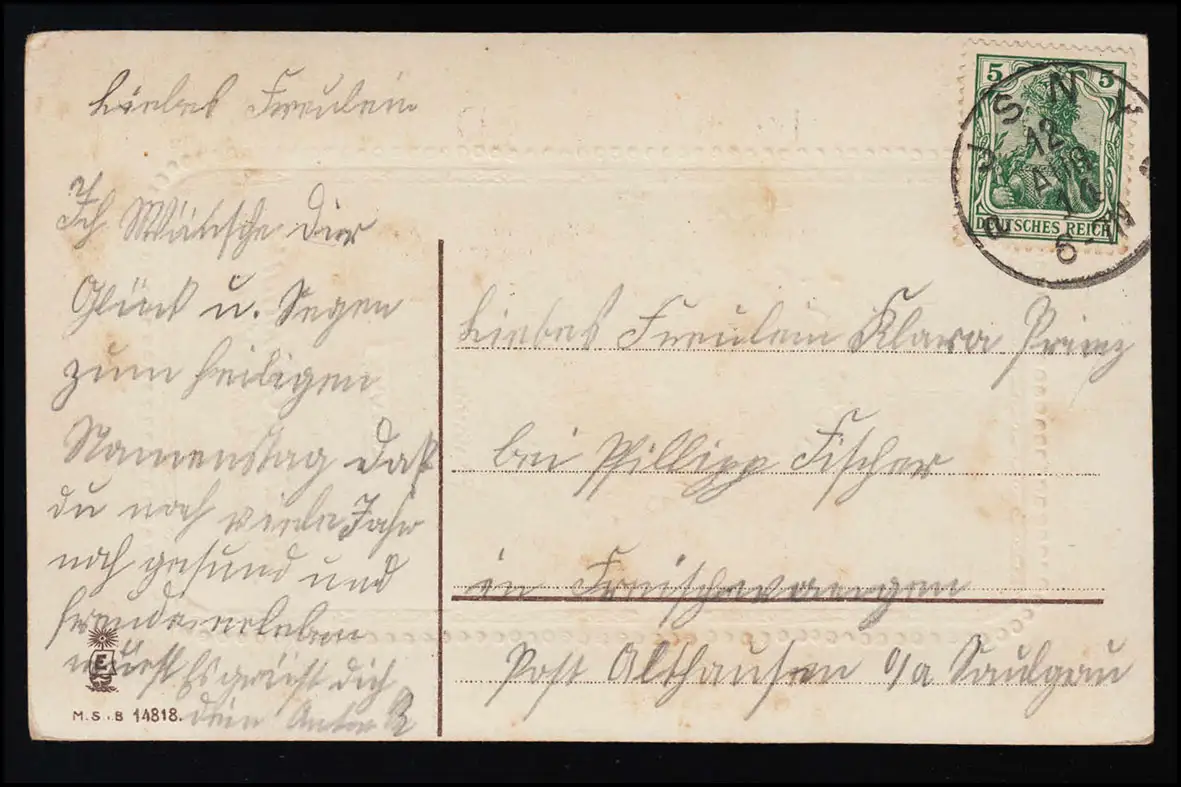 Liebes Freulein
Ich Wünsche dir
Glück u. Segen
zum heiligen
Namenstag daß
du noch viele Jahr
noch gesund und
freude erleben
Es grüßt dich
dein Anton
M.S.i.B 14818.
5 5
DEUTSCHES REICH
ISNY
12
AUG
6-7N
Liebes Freulein Klara Prinz
bei Phillipp Fischer
in
Post Althausen o/a Saulgau